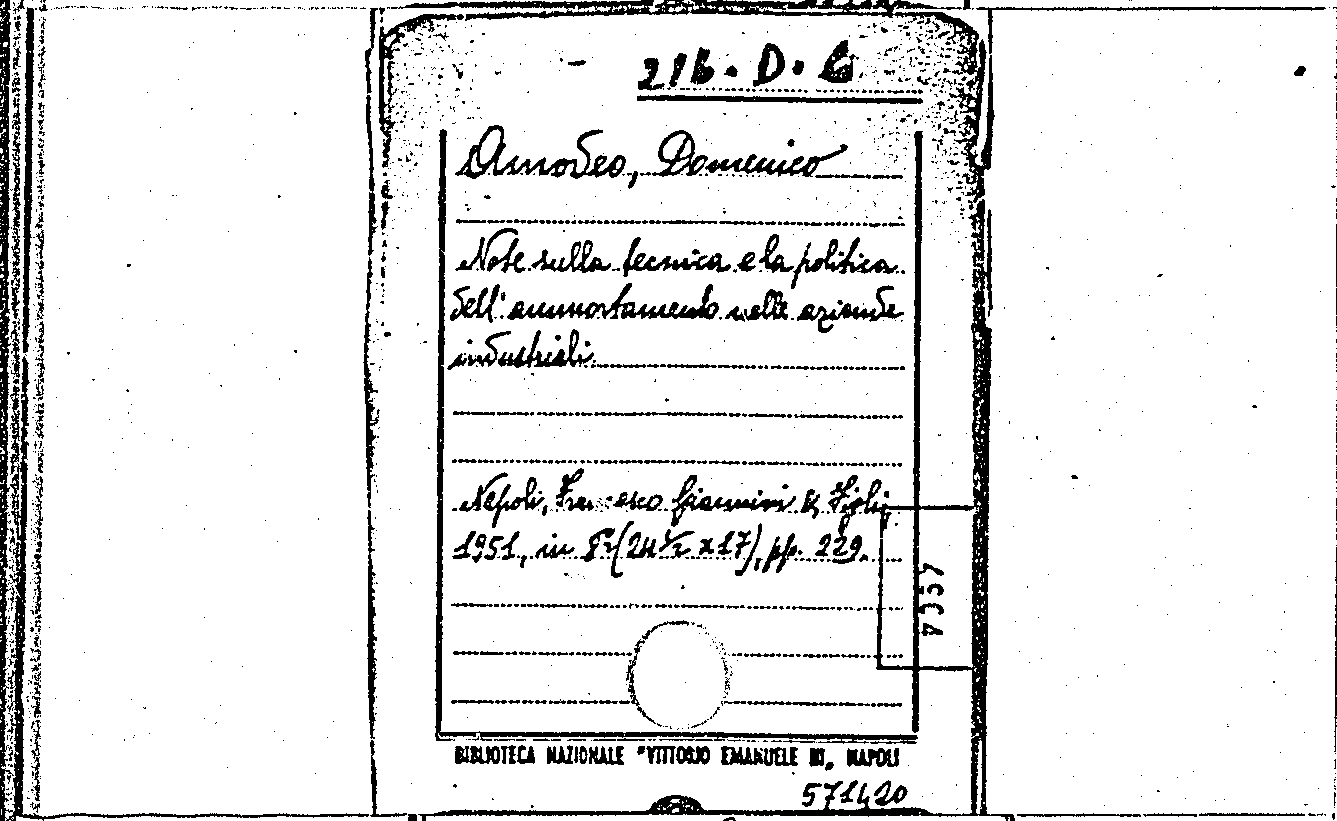 216. D. 6
Amodeo, Domenico
Note sulla tecnica e la politica
dell'ammortamento nelle aziende
industriali.
Napoli, Francesco Giannini & Figli,
1951, in 8°(24½ x 17), pp. 229.
BIBLIOTECA NAZIONALE "VITTORIO EMANUELE III„ NAPOLI
571420